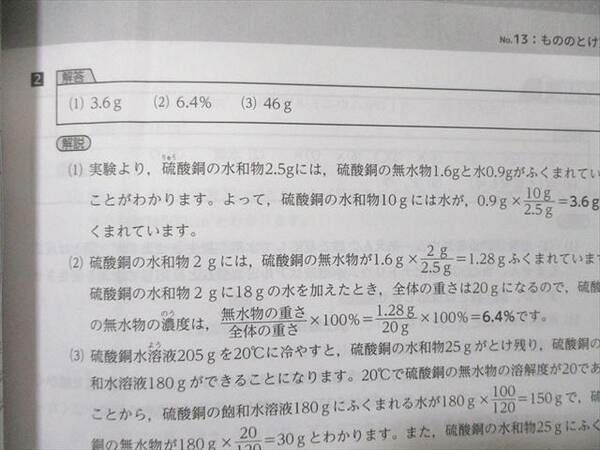 No.13：もののとけ
2 解答
(1) 3.6 g (2) 6.4% (3) 46 g
解説
(1) 実験より，硫酸銅の水和物2.5gには，硫酸銅の無水物1.6gと水0.9gがふくまれてい
ことがわかります。よって，硫酸銅の水和物10gには水が，0.9 g × 10 g / 2.5 g = 3.6 g
くまれています。
(2) 硫酸銅の水和物 2 g には，硫酸銅の無水物が1.6 g × 2 g / 2.5 g = 1.28 g ふくまれています
硫酸銅の水和物 2 g に18 g の水を加えたとき，全体の重さは20 g になるので，硫酸
の無水物の濃度は，無水物の重さ / 全体の重さ × 100% = 1.28 g / 20 g × 100% = 6.4%です。
(3) 硫酸銅水溶液205 g を20℃に冷やすと，硫酸銅の水和物25 g がとけ残り，硫酸
和水溶液180 g ができることになります。20℃で硫酸銅の無水物の溶解度が20であ
ことから，硫酸銅の飽和水溶液180 g にふくまれる水が180 g × 100 / 120 = 150 g で，硫
銅の無水物が180 g × 20 / 120 = 30 g とわかります。また，硫酸銅の水和物25 g にふく